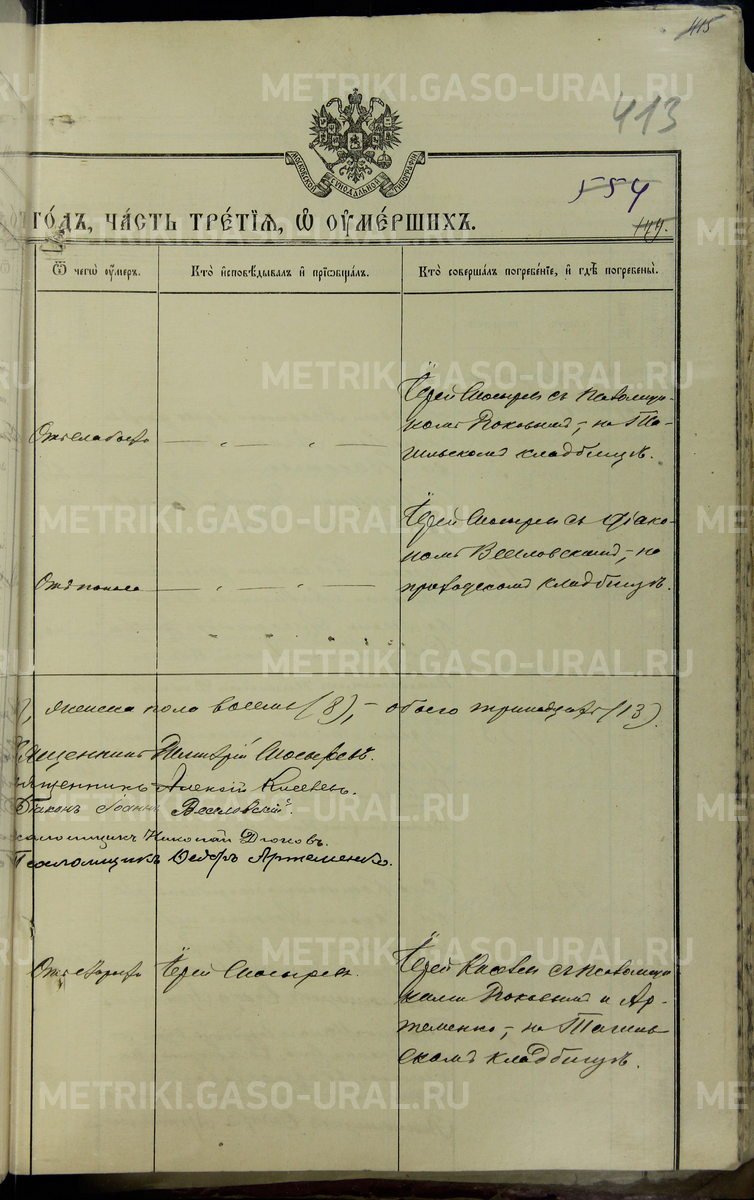 415
413
МОСКОВСКОЙ СѴНОДАЛЬНОЙ ТИПОГРАФІИ
554
144.
ГО́ДЪ, ЧА́СТЬ ТРЕ́ТІѦ, Ѡ ОУ҆МЕ́РШИХЪ.
Ѿ чегѡ̀ оу҆́меръ.
Кто̀ и҆сповѣ́дывалъ и҆ прїѡбща́лъ.
Кто̀ соверша́лъ погребе́нїе, и҆ гдѣ̀ погребены̀.
Іерей Мосыревъ съ псаломщи-
комъ Дюковымъ, на Та-
гильскомъ кладбищѣ.
Отъ слабости
Іерей Мосыревъ съ діако-
номъ Веселовскимъ, на
приходскомъ кладбищѣ.
Отъ поноса
женска пола восемь (8), – обоего тринадцать (13).
Священникъ Димитрій Мосыревъ.
Священникъ Алексій Киселевъ.
Діаконъ Іоаннъ Веселовскій.
Псаломщикъ Николай Дюковъ.
Псаломщикъ Ѳедоръ Артеменко.
Отъ старости
Іерей Мосыревъ.
Іерей Киселевъ съ псаломщи-
ками Дюковымъ и Ар-
теменко, на Тагиль-
скомъ кладбищѣ.
METRIKI.GASO-URAL.RU